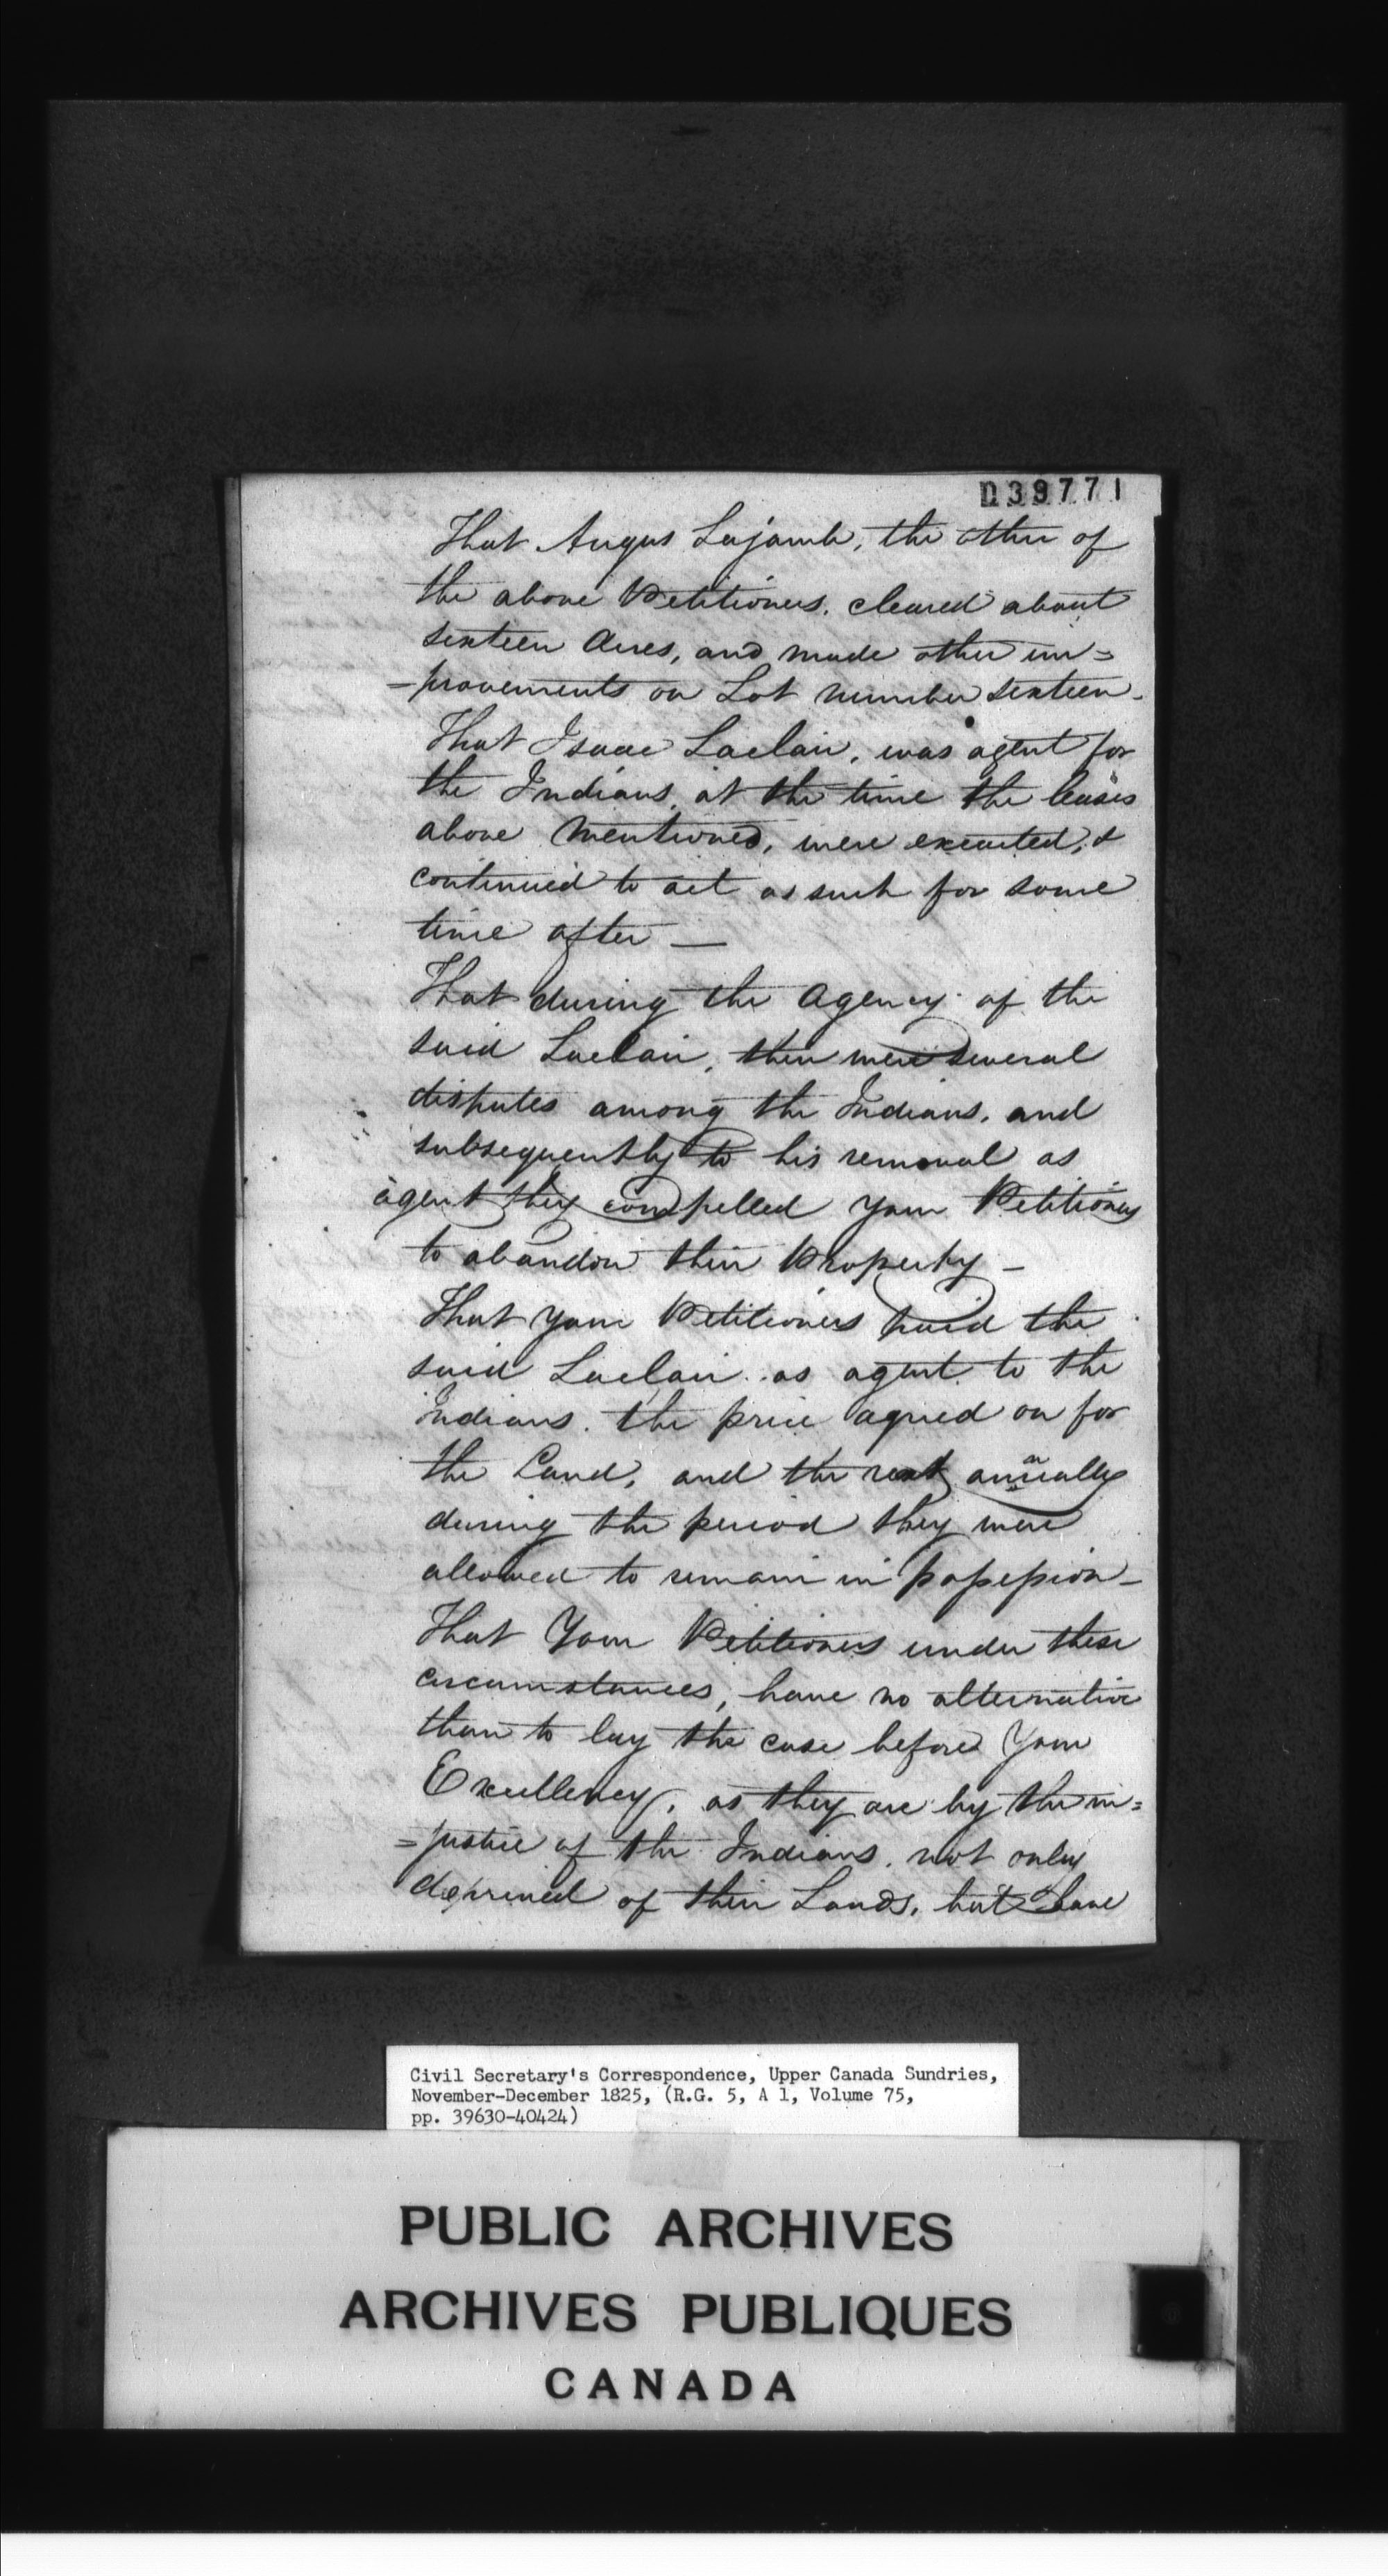 039771
That Angus Lajamb, the other of
the above Petitioners, cleared about
sixteen Acres, and made other im=
=provements on Lot number sixteen.
That Isaac Laclair, was agent for
the Indians, at the time the leases
above mentioned, were executed, &
continued to act as such for some
time after —
That during the Agency of the
said Laclair, there were several
disputes among the Indians, and
subsequently to his removal as
agent they compelled Your Petitioners
to abandon their Property —
That Your Petitioners paid the
said Laclair as agent to the
Indians, the price agreed on for
the Land, and the rent annually
during the period they were
allowed to remain in possession —
That Your Petitioners under these
circumstances, have no alternative
than to lay the case before Your
Excellency, as they are by the in=
=justice of the Indians, not only
deprived of their Lands, but have
Civil Secretary's Correspondence, Upper Canada Sundries,
November-December 1825, (R.G. 5, A 1, Volume 75,
pp. 39630-40424)
PUBLIC ARCHIVES
ARCHIVES PUBLIQUES
CANADA